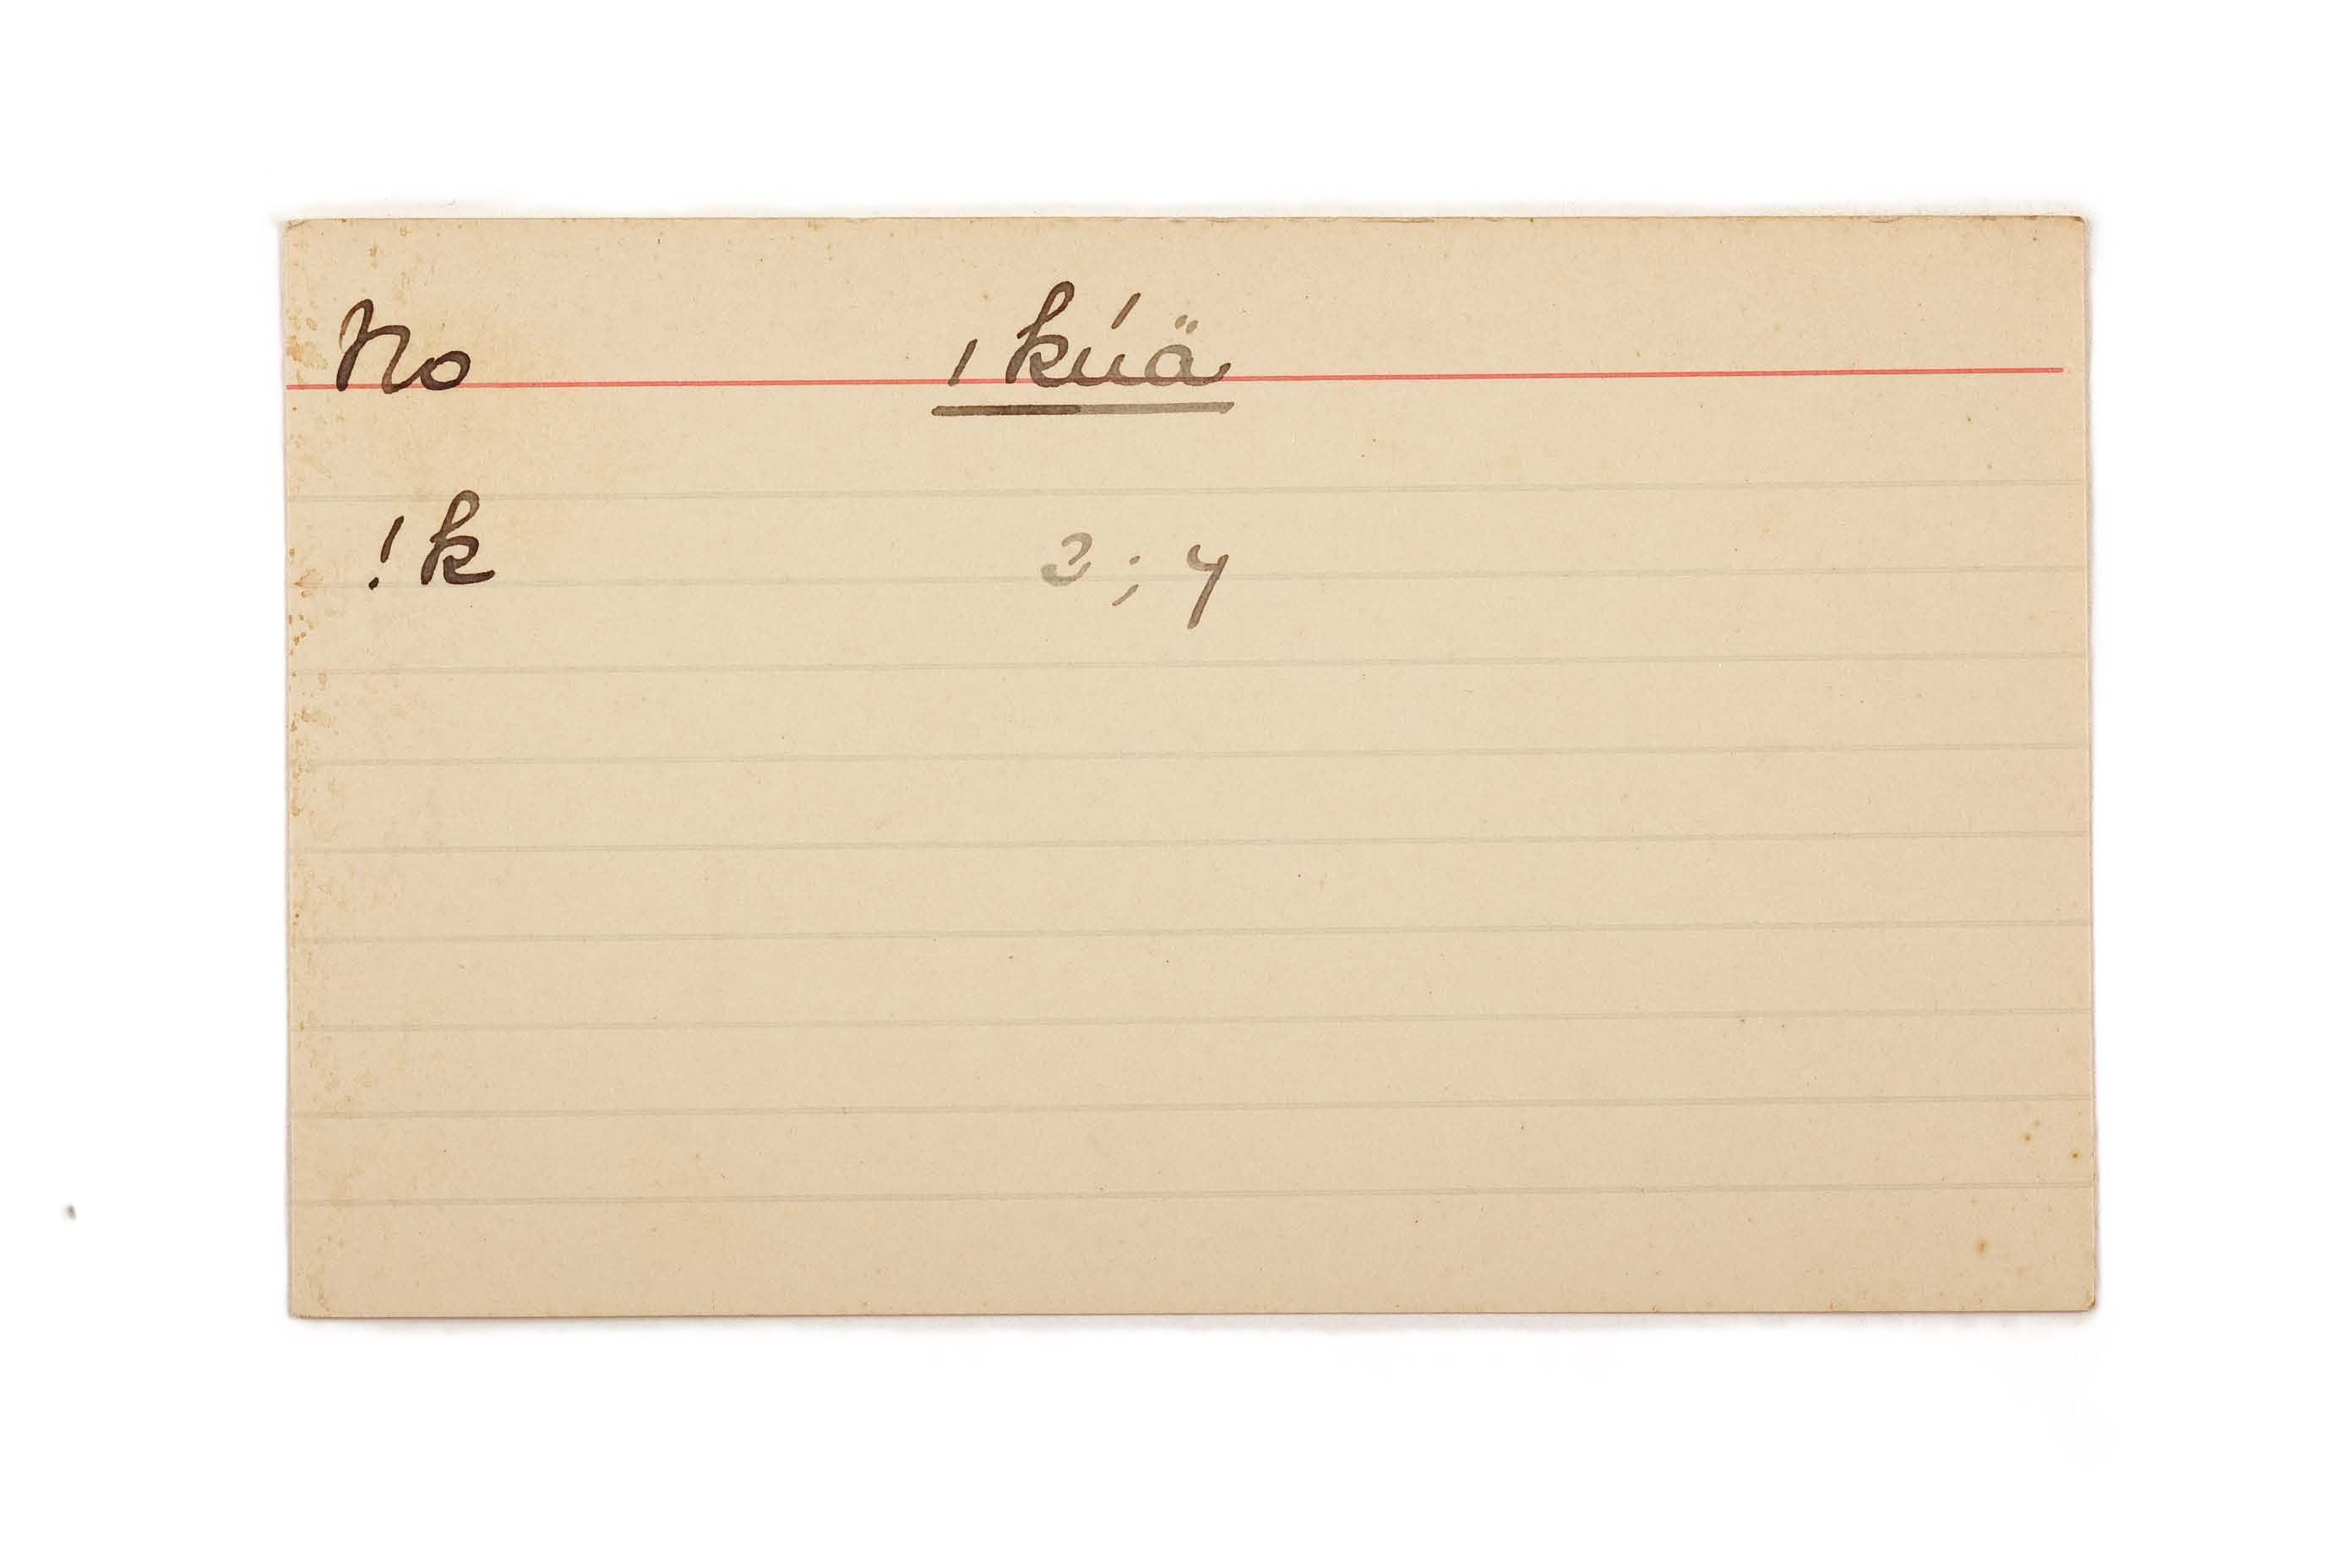 No ǀkúä
!k 2; 4